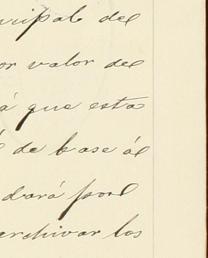 ncipal del
or valor del
á que esta
de base ál
dará por
archivar los